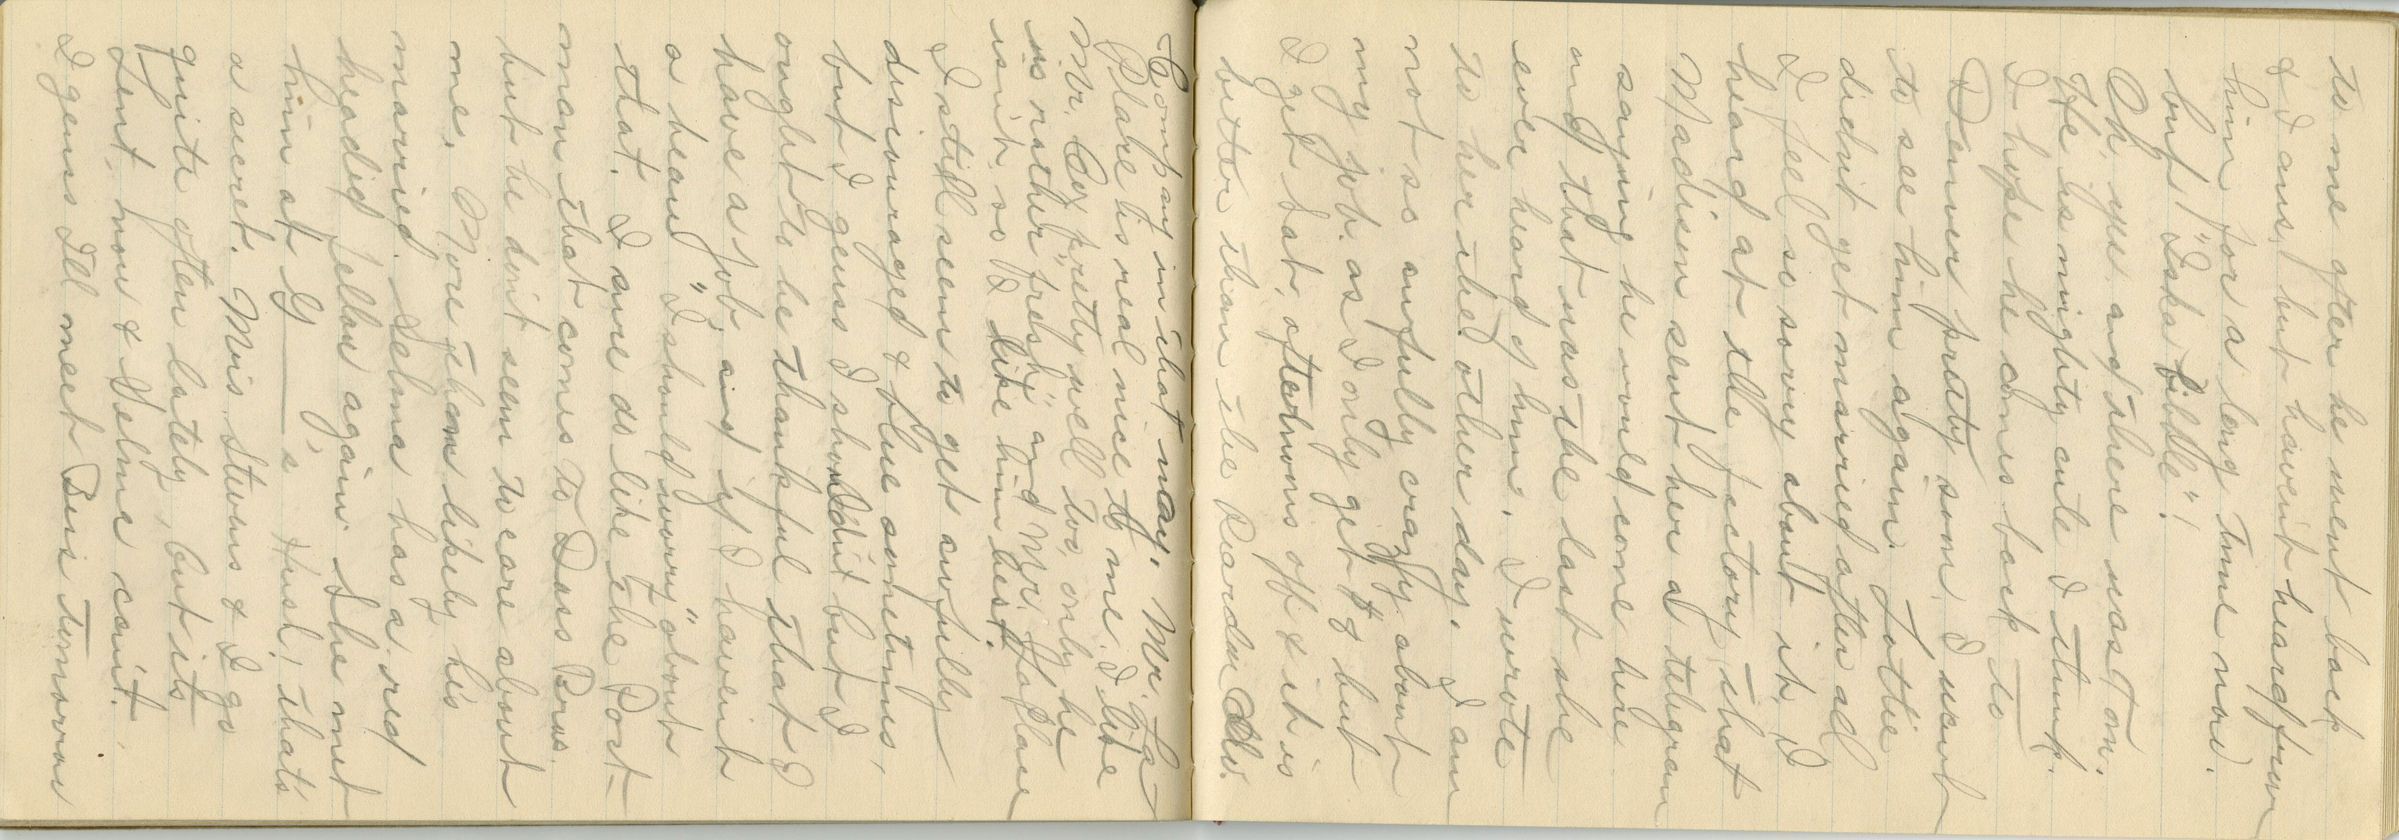 to me after he went back
& I ans. but havent heard from
him for a long time now.
but! "Iska bibble"!
Oh, you and there was Ton.
He is mighty cute I think.
I hope he comes back to
Denver pretty soon, I want
to see him again. Tottie
didn't get married after all
I feel so sorry about it, I
heard at the factory that
Madison sent her a telegram
saying he would come here
and that was the last she
ever heard of him. I wrote
to her the other day. I am
not so awfully crazy about
my job. as I only get $8 but
I get Sat, afternoons off & it is
better than the Reardon Clo.
Company in that way. Mr. La-
Plake is real nice to me. I like
Mr. Coy pretty well too, only he
is rather "fresh" and Mr. LaPlace
isnt, so I like him best.
I still seem to get awfully
discouraged & blue sometimes,
but I guess I shouldnt but I
ought to be thankful that I
have a job, and if I havent
a beau "I should worry" about
that. I sure do like the Post-
man that comes to Doss Bros.
but he don't seem to care about
me. More than likely he's
married. Selma has a red
headed fellow again She met
him at G____'s Hush! thats
a secret. Mrs. Stevens & I go
quite often lately, but its
Lent, now & Selma can't.
I guess I'll meet Bess tomorrow